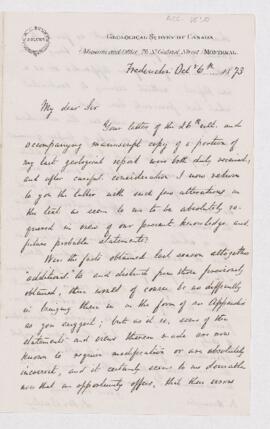 GEOLOGICAL SURVEY OF CANADA
Museum and Office, 76 St. Gabriel Street, MONTREAL
Fredericton Oct 6th 1873
My dear Sir
Your letter of the 26th ult. and
accompanying manuscript copy of a portion of
my last geological report were both duly received,
and after careful consideration I now return
to you the latter with such few alterations in
the text as seem to me to be absolutely re-
quired in view of our present knowledge and
future probable statements.
Were the facts obtained last season altogether
"additional" to and distinct from those previously
obtained, there would of course be no difficulty
in bringing them in in the form of an Appendix
as you suggest; but as it is, some of the
statements and views therein made are now
known to require modification or are absolutely
incorrect, and it certainly seems to me desirable
now that an opportunity offers, that these errors